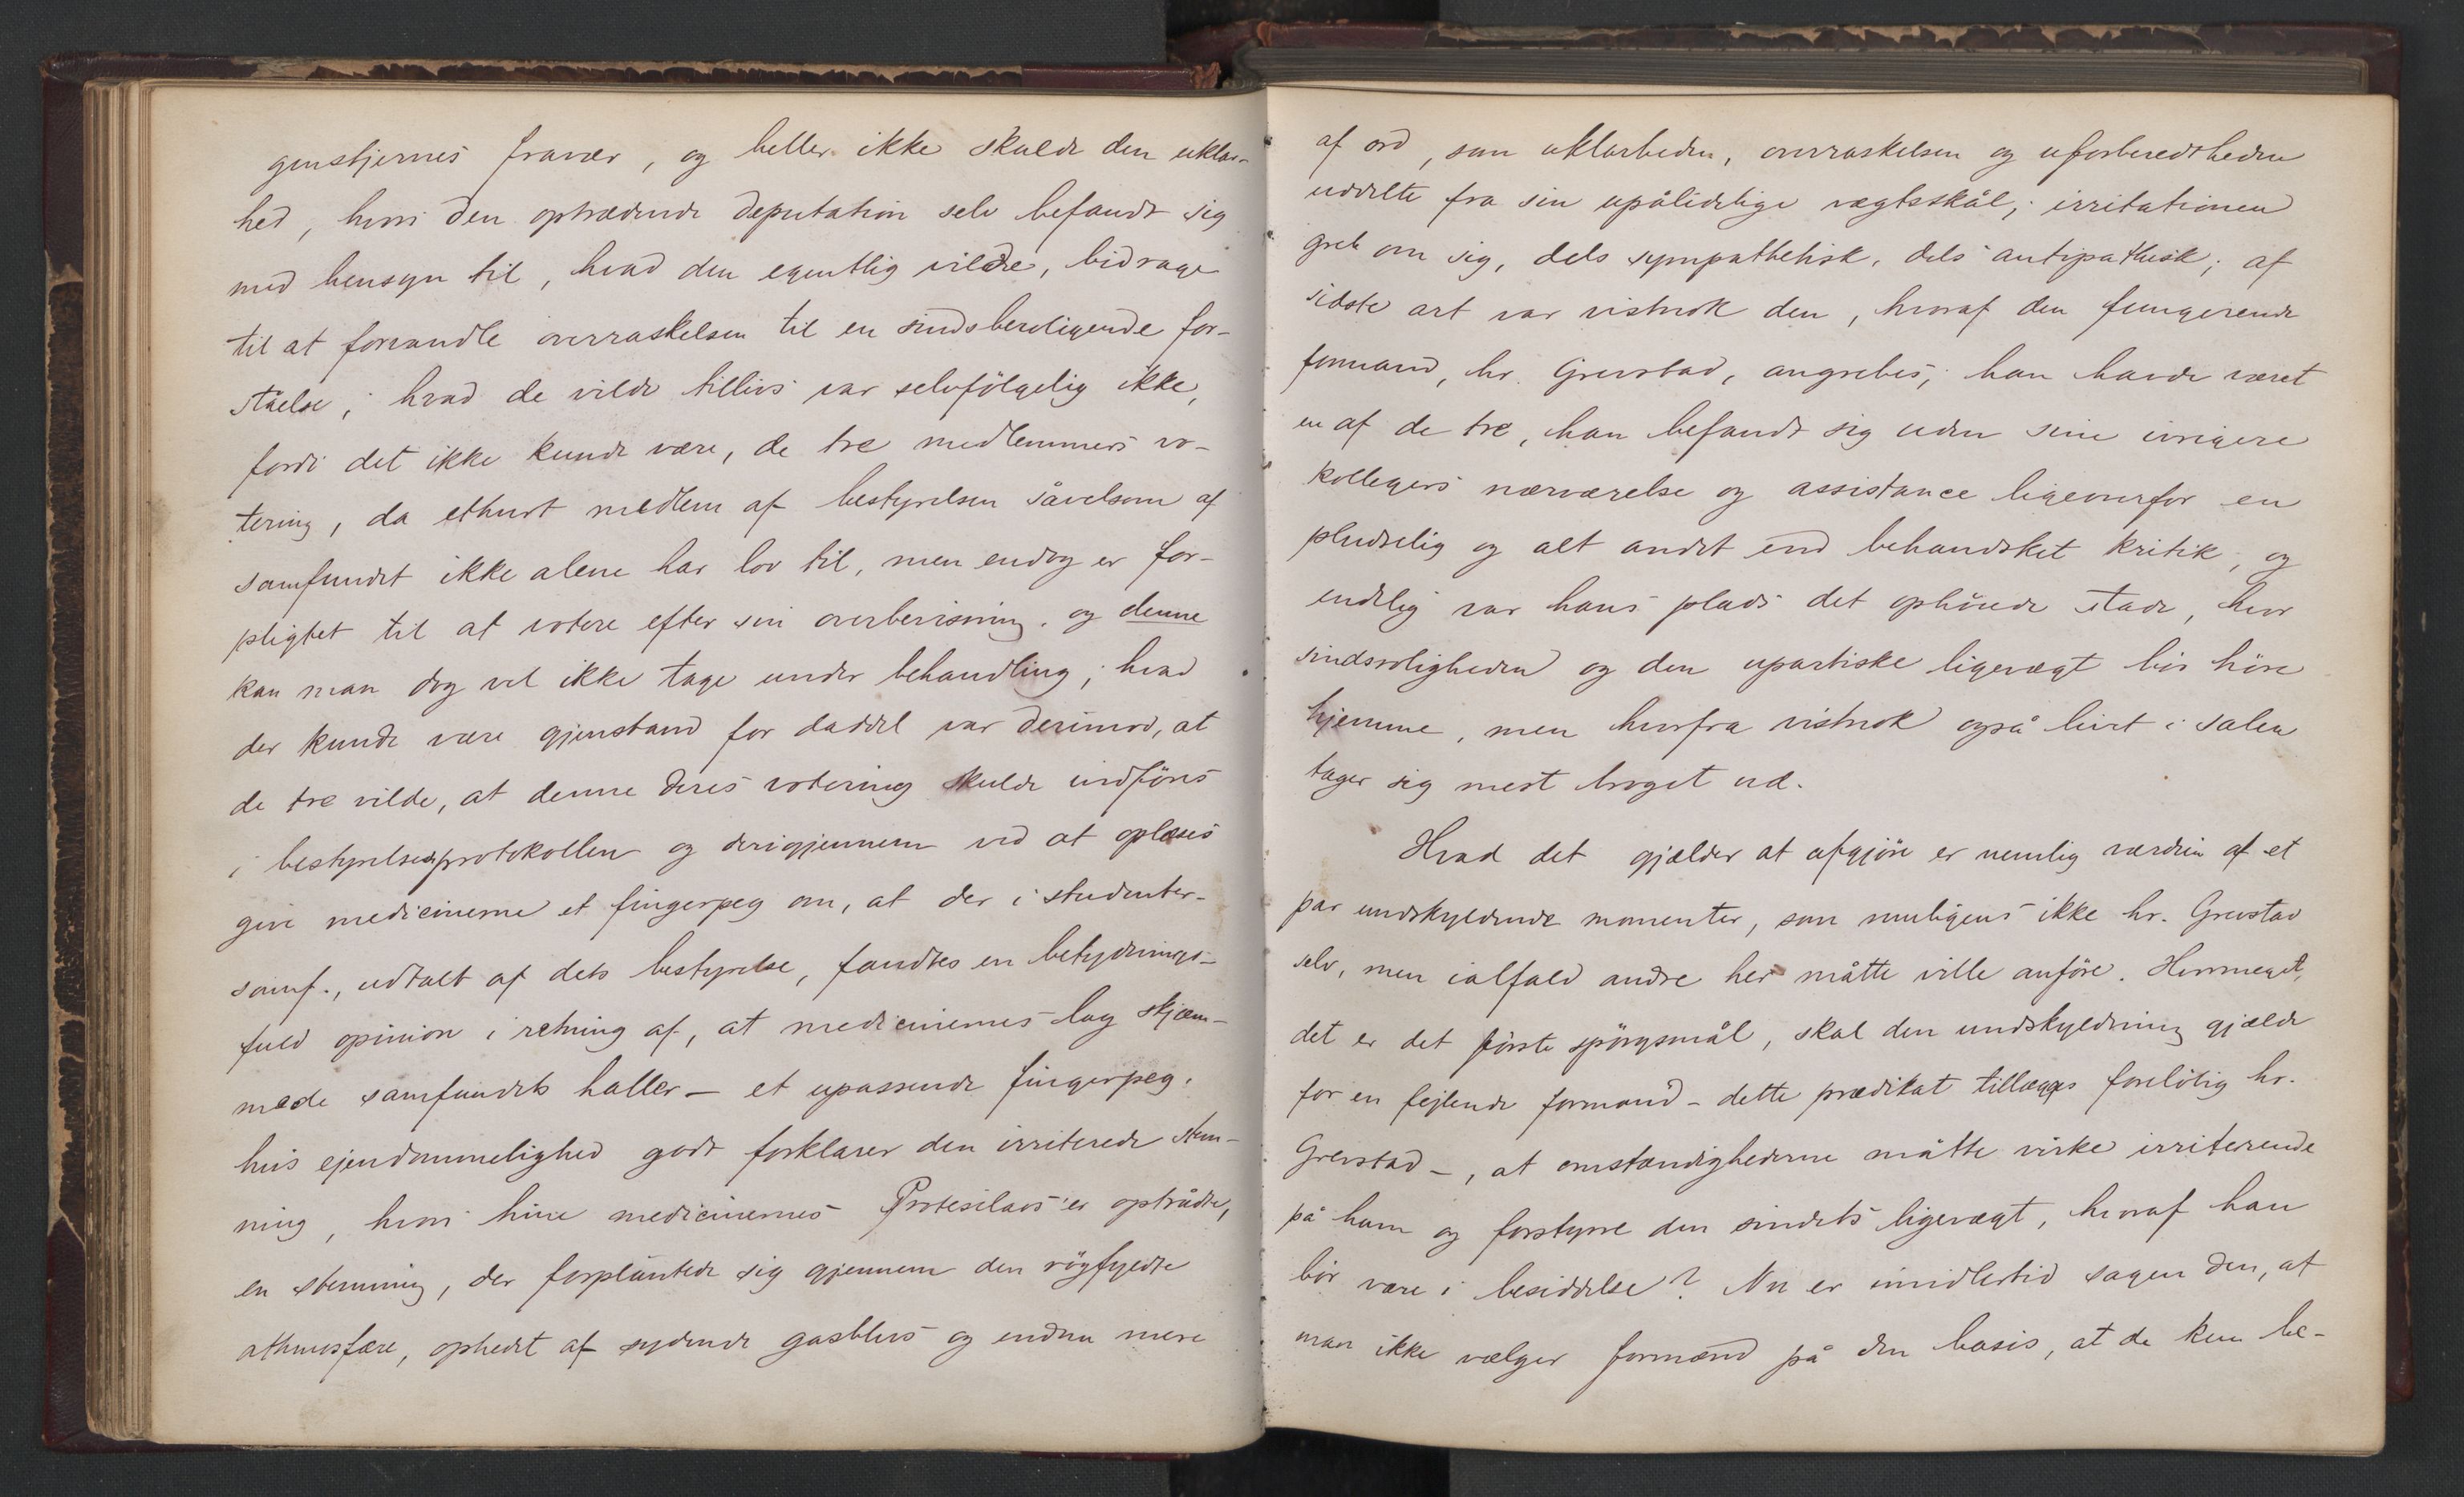 genstjernes fravær, og heller ikke skulde den uklar-
hed, hvori den optrædende deputation selv befandt sig
med hensyn til, hvad den egentlig vilde, bidrage
til at forvandle overraskelsen til en sindsberoligende for-
ståelse; hvad de vilde tillivs var selvfölgelig ikke,
fordi det ikke kunde være, de tre medlemmers vo-
tering, da ethvert medlem af bestyrelsen såvelsom af
samfundet ikke alene har lov til, men endog er for-
pligtet til at votere efter sin overbevisning, og denne
kan man dog vel ikke tage under behandling; hvad
der kunde være gjenstand for daddel var derimod, at
de tre vilde, at denne deres votering skulde indföres
i bestyrelsesprotokollen og derigjennem ved at oplæses
give medicinerne et fingerpeg om, at der i studenter-
samf., udtalt af dets bestyrelse, fandtes en betydnings-
fuld opinion i retning af, at medicinernes lag skjæm-
mede samfundets haller — et upassende fingerpeg,
hvis ejendommelighed godt forklarer den irriterede stem-
ning, hvori hine medicinernes Protesilaos'er optrådte,
en stemning, der forplantede sig gjennem den rögfyldte
athmosfære, ophedet af sydende gasblus og endnu mere
af ord, som uklarheden, overraskelsen og uforberedtheden
uddelte fra sin upålidelige vægtskål; irritationen
greb om sig, dels sympathetisk, dels antipathisk; af
sidste art var vistnok den, hvoraf den fungerende
formand, hr. Grevstad, angrebes; han havde været
en af de tre, han befandt sig uden sine ivrigere
kollegers nærværelse og assistance ligeoverfor en
pludselig og alt andet end behandsket kritik, og
endelig var hans plads det ophöiede stade, hvor
sindsroligheden og den upartiske ligevægt bör höre
hjemme, men hvorfra vistnok også livet i salen
tager sig mest broget ud.
Hvad det gjælder at afgjöre er nemlig værdien af et
par undskyldende momenter, som muligens ikke hr. Grevstad
selv, men ialfald andre her måtte ville anföre. Hvormeget,
det er det förste spörgsmål, skal den undskyldning gjælde
for en fejlende formand – dette prædikat tillægges forelöbig hr.
Grevstad –, at omstændighederne måtte virke irriterende
på ham og forstyrre den sindets ligevægt, hvoraf han
bör være i besiddelse? Nu er imidlertid sagen den, at
man ikke vælger formænd på den basis, at de kun be-